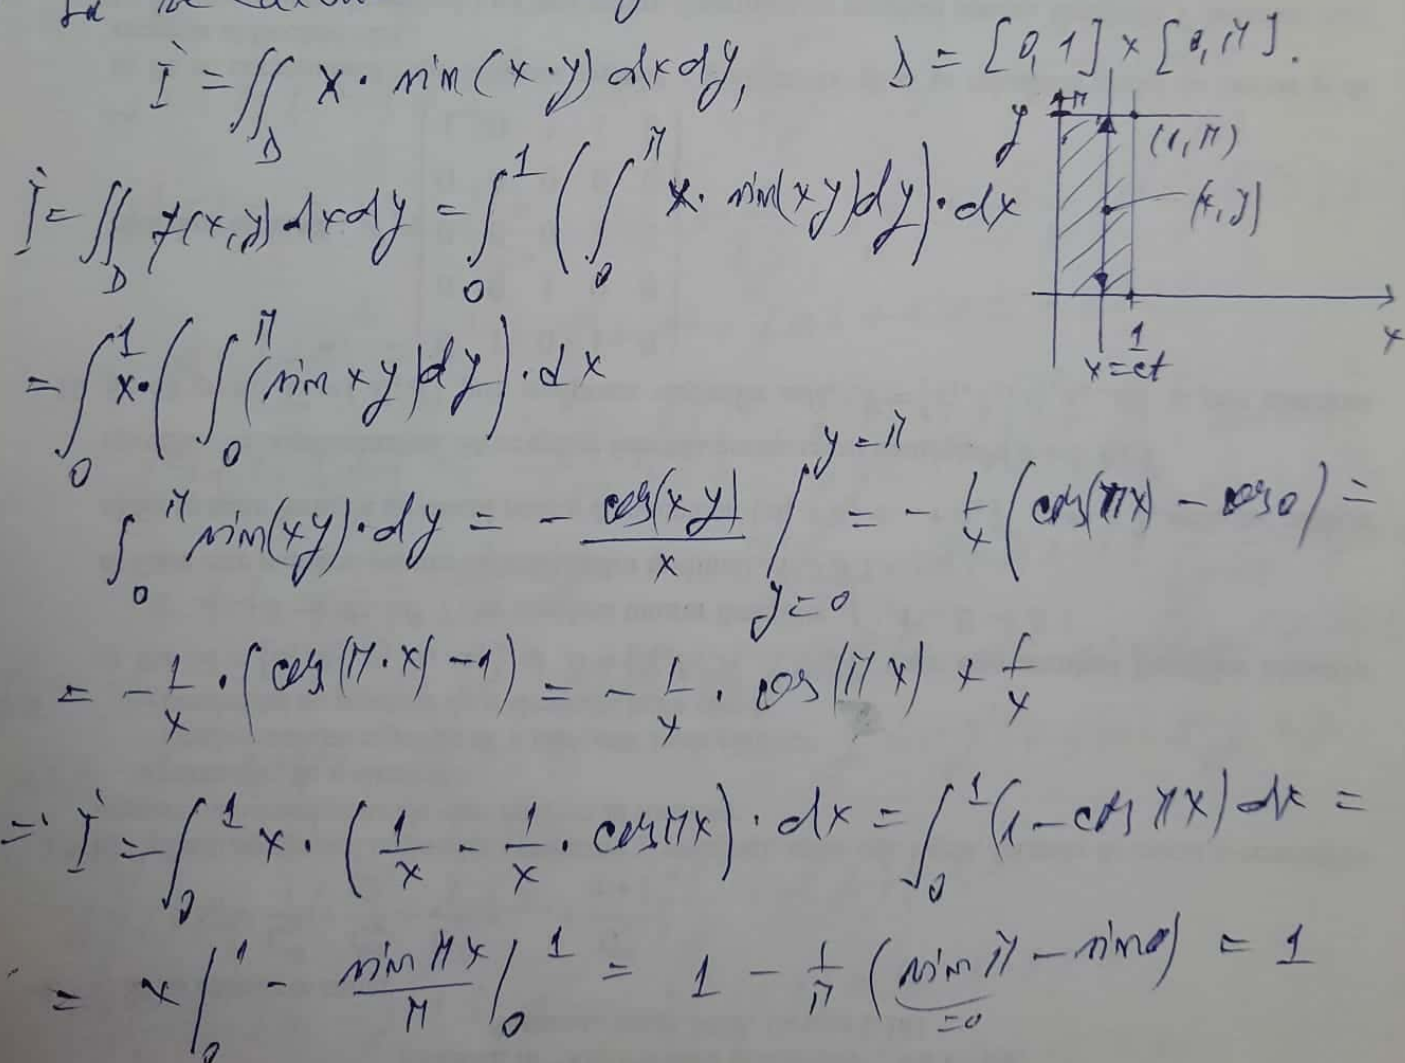 I = ∬_D x · sin(x·y) dx dy, D = [0,1] × [0,π].
I = ∬_D f(x,y) dx dy = ∫_0^1 ( ∫_0^π x · sin(xy) dy ) · dx
y π (1,π)
(x,y)
1 x
x=ct
= ∫_0^1 x· ( ∫_0^π (sin xy) dy ) · dx
∫_0^π sin(xy)·dy = - cos(xy)/x |_{y=0}^{y=π} = - 1/x ( cos(πx) - cos 0 ) =
= - 1/x · ( cos(π·x) - 1 ) = - 1/x · cos(πx) + 1/x
=> I = ∫_0^1 x · ( 1/x - 1/x · cos πx ) · dx = ∫_0^1 (1 - cos πx) dx =
= x |_0^1 - sin πx/π |_0^1 = 1 - 1/π ( sin π - sin 0 ) = 1
=0